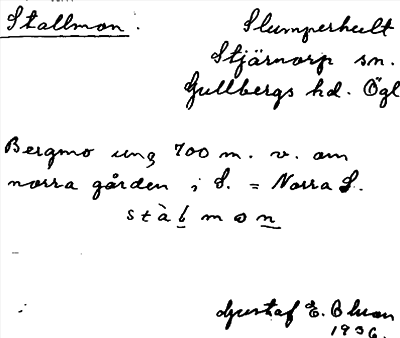 Stallmon.
Slumperhult
Stjärnorp sn.
Gullbergs hd. Ögl
Bergmo ung 700 m. v. om
norra gården i S. = Norra S.
stàlmon
Gustaf E. Bluon
1936.